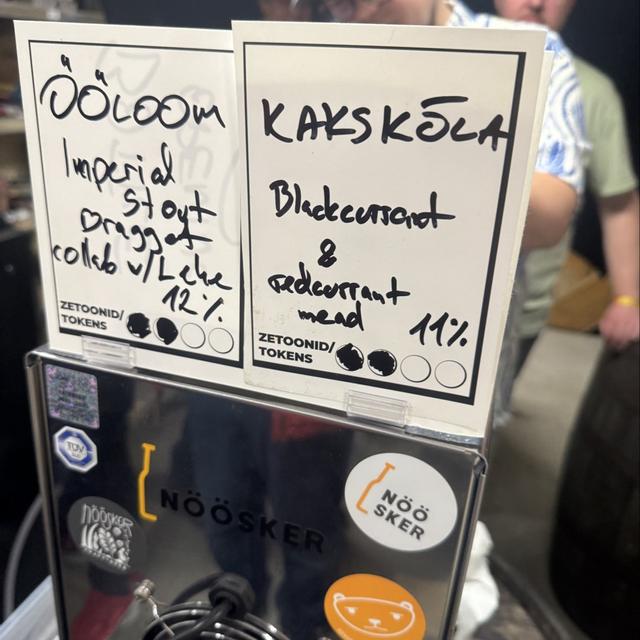 ÖÖLOOM
Imperial
Stout
Bragget
collab w/Lehe
12%
ZETOONID/
TOKENS
KAKSKÕLA
Blackcurrant
&
redcurrant
mead
11%
ZETOONID/
TOKENS
TÜV
NÖÖSKER
NÖÖSKER
NÖÖ
SKER